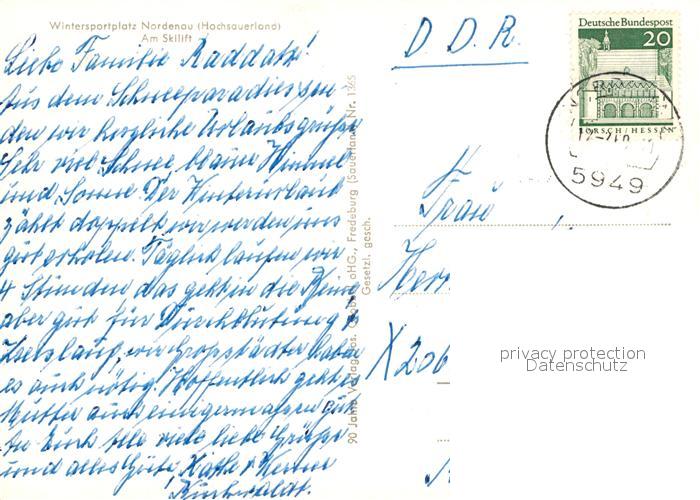 Wintersportplatz Nordenau (Hochsauerland)
Am Skilift
Liebe Familie Raddatz!
Aus dem Schneeparadies sen
den wir herzliche Urlaubsgrüße
Sehr viel Schnee, blauer Himmel
und Sonne. Der Winterurlaub
zählt doppelt, wir werden uns
gut erholen. Täglich laufen wir
4 Stunden das geht in die Beine
aber gut für Durchblutung u.
Kreislauf, wir Großstädter haben
es auch nötig. Hoffentlich geht es
Mutter auch einigermaßen gut
Euch alle viele liebe Grüße
und alles Gute Käthe u Werner
90 Jahre Verlag Jos. Grobbel oHG., Fredeburg (Sauerland) Nr. 1365
Gesetzl. gesch.
D. D. R.
Deutsche Bundespost
20
LORSCH/HESSEN
5949
Frau
Herr
X 206
privacy protection
Datenschutz